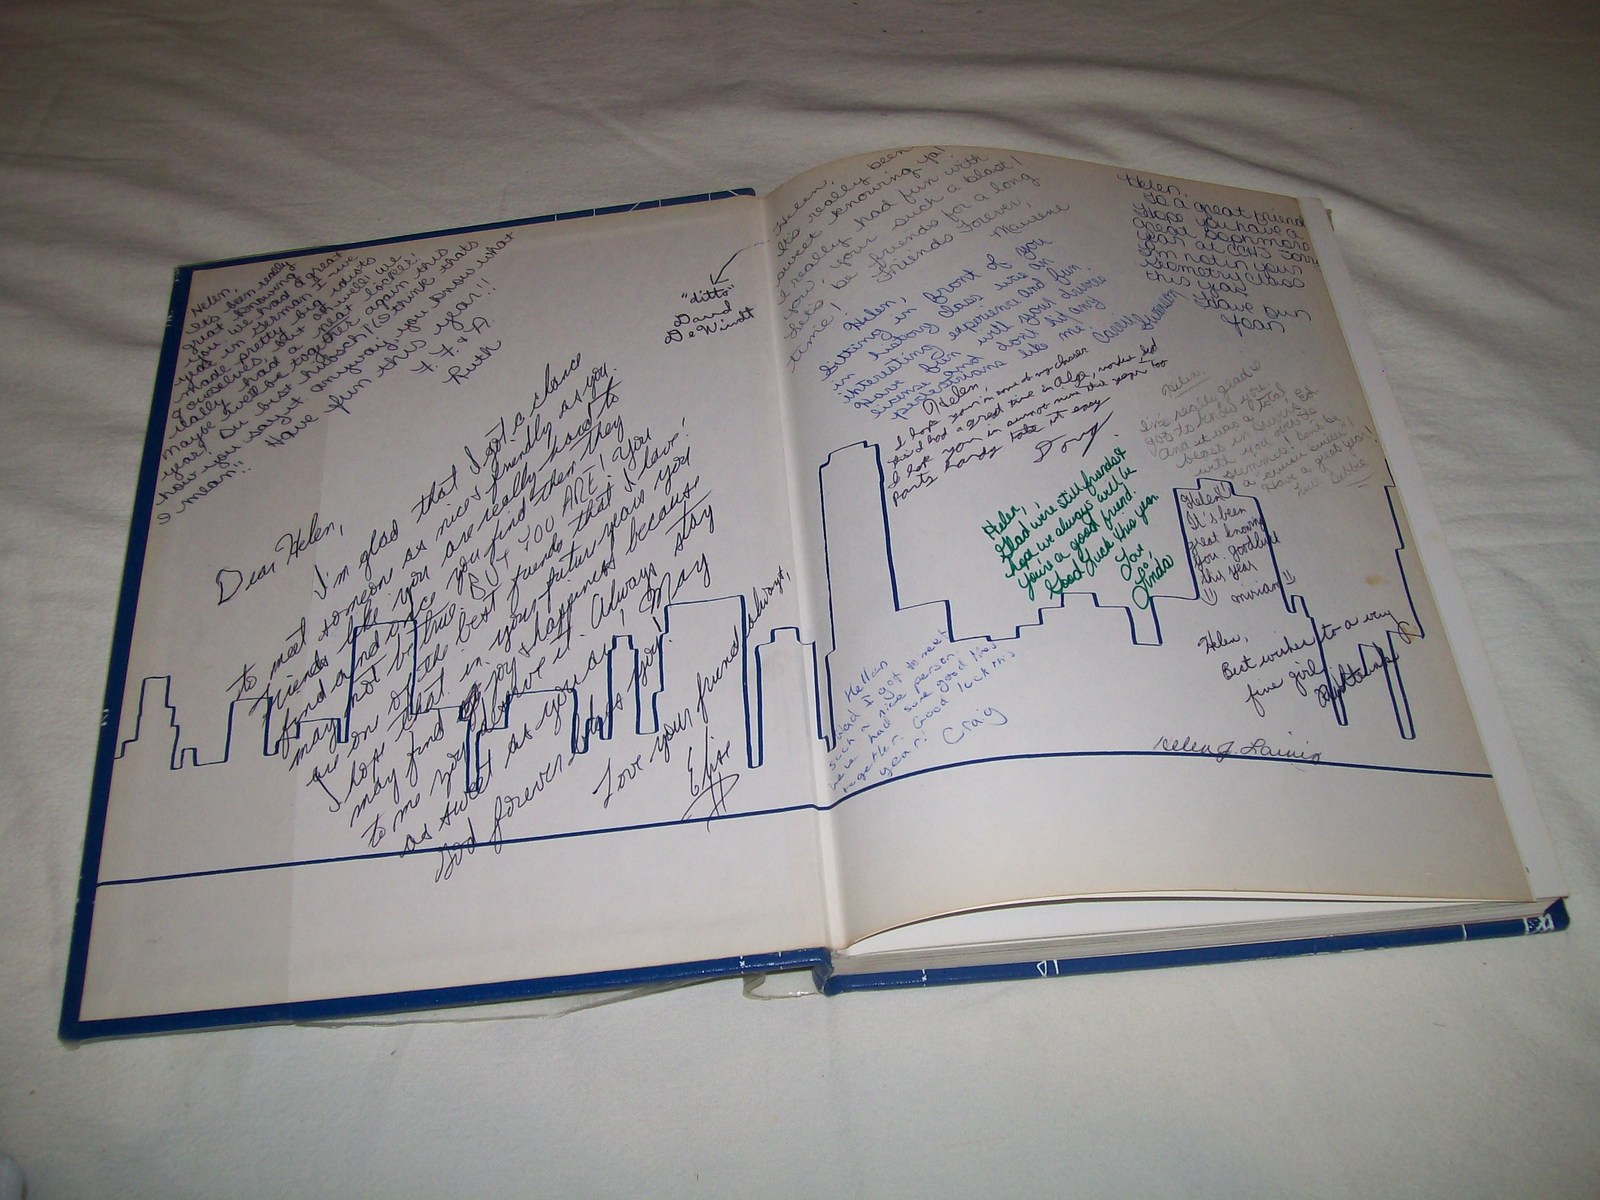 Helen,
It's been really
great knowing
you. We had a great
year in German. I've
made pretty big idiots
ourselves, but oh well! We
had a neat locker!
maybe we'll be together again this
year!
how you say it anyway, you know what
I mean!!
Have fun this year!!
F. F. & A.
Ruth
Dear Helen,
I'm glad that I got a chance
to meet someone as nice & friendly as you.
Friends like you are really hard to
find and once you find them they
may not be true BUT YOU ARE! You
are on of the best friends that I have!
I hope that in your future years you
may find joy & happiness because
to me you deserve it. Always stay
as sweet as you are, & May
God forever bless you!
Love your friend always,
Elise
"ditto"
David
DeWindt
Helen,
It's really been
sweet knowing ya!
I really had fun with
you, your such a blast!
Let's be friends for a long
time!
Friends Forever,
Maurene
Helen,
Sitting in front of you
in history class was an
interesting experience and fun.
Have fun with your drivers
lisense and don't hit any
pedestrians like me!
Helen,
I hope your in some of my classes
this had a great time in Alg,
I hope your in summer nine this year too
Party hardy take it easy
Doug
Helen,
To a great friend
Hope you have a
great Sophmore
year at
I'm not in your
Geometry class
this year
Have Fun
Joan
Helen,
I've really glad I
got to know you.
And it was a total
blast in
with you
Have a great year!
Debbie
Helen,
Glad we're still friends &
hope we always will be
You're a good friend.
Good luck this year
Love,
Linda
Helen!!
It's been
great knowing
you. Goodluck
this year
Miriam
Helen,
Best wishes to a very
fine girl
Hellan
Glad I got to meet
such a nice person.
We've had some good times
together. Good luck this
year!
Craig
Helen J.